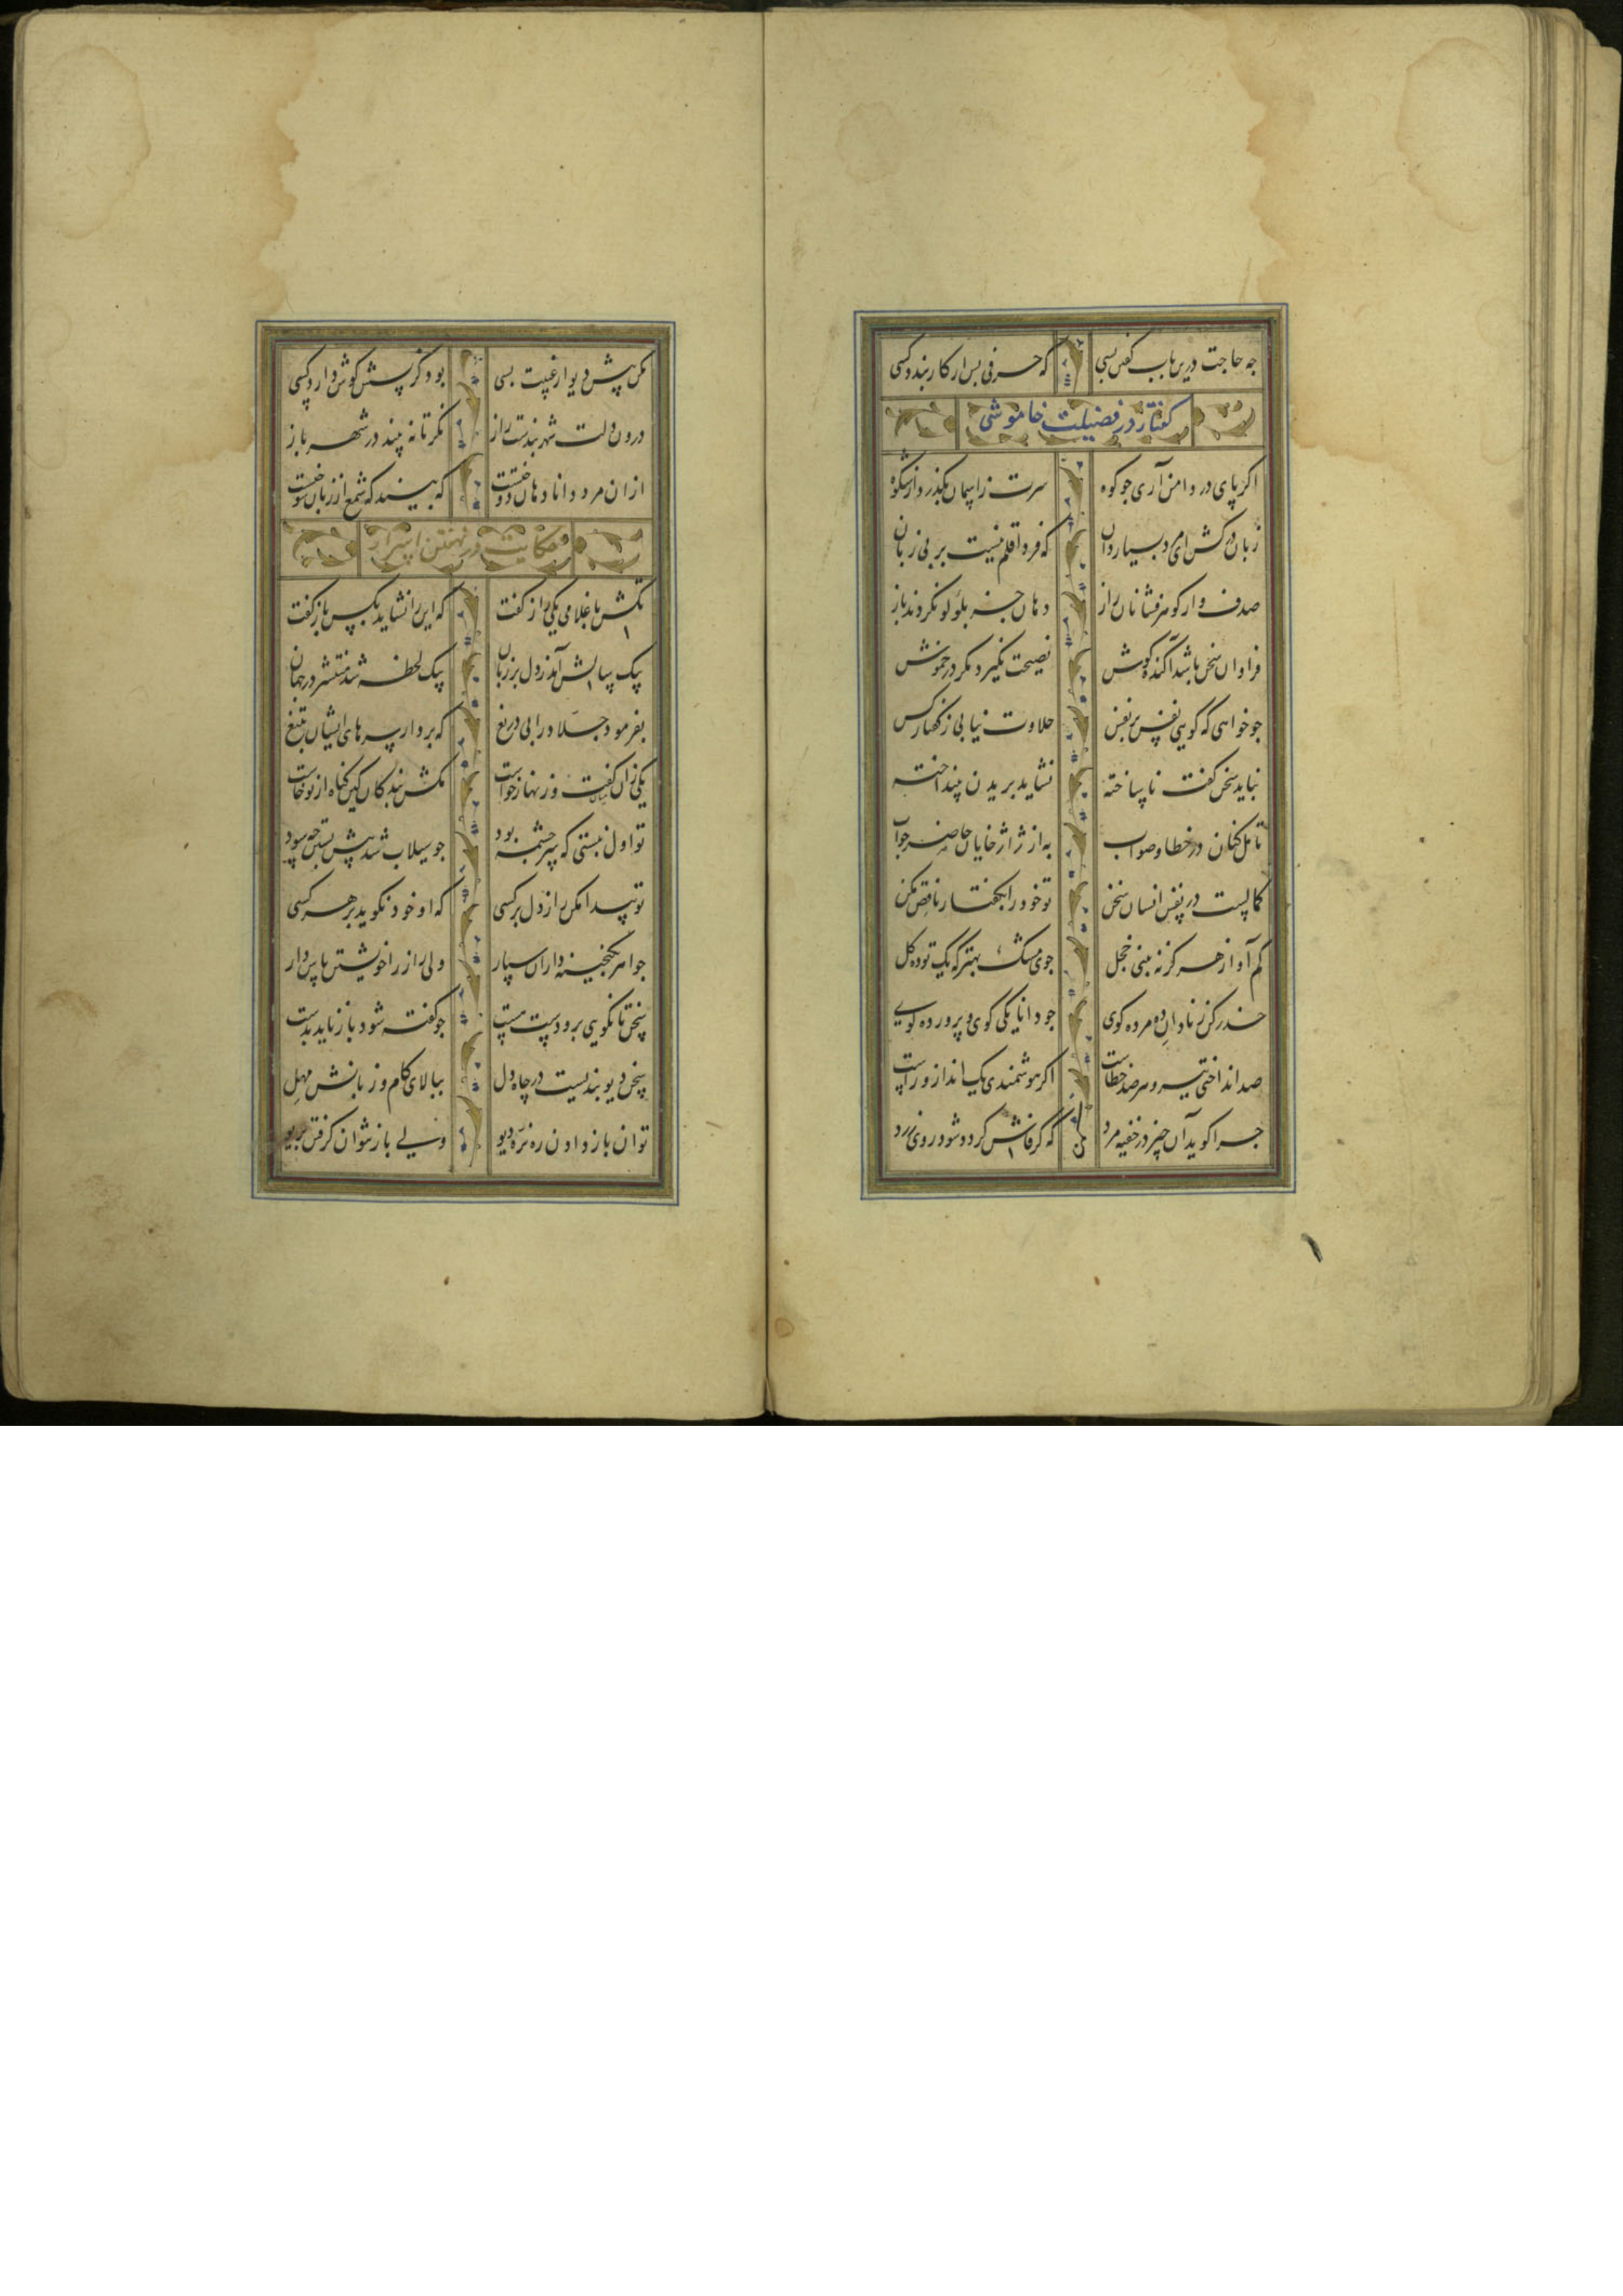 چه حاجت درین باب گفتن بسی که حرفی بس ار کار بندد کسی
گفتار در فضیلت خاموشی
اگر پای در دامن آری جو کوه سرت ز اسمان بگذرد از شکوه
زبان درکش ای مرد بسیار دان که فردا قلم نیست بر بی زبان
صدف وار گوهرفشانان راز دهان جز بلؤلؤ نکردند باز
فراوان سخن باشد آکنده گوش نصیحت نگیرد مگر در خموش
جو خواهی که گویی نفس بر نفس حلاوت نیابی ز گفتار کس
نباید سخن گفت ناساخته نشاید بریدن نینداخته
تامل کنان در خطا و صواب به از ژاژخایان حاضر جواب
کمالست در نفس انسان سخن تو خود را بگفتار ناقص مکن
کم آواز هرگز نه بینی خجل جوی مشک بهتر که یک توده گل
حذر کن ز نادان ده مرده گوی جو دانا یکی گوی و پرورده گوی
صد انداختی تیر و هر صد خطاست اگر هوشمندی یک انداز و راست
جرا گوید آن چیز در خفیه مرد که گر فاش گردد شود روی زرد
مکن
مکن پیش دیوار غیبت بسی بود کز پسش گوش دارد کسی
درون دلت شهربندست راز نگر تا نه بیند در شهر باز
ازان مرد دانا دهان دوختست که بیند که شمع از زبان سوختست
حکایت در نهفتن اسرار
تکش با غلامی یکی راز گفت که این را نشاید بکس باز گفت
بیک سالش آمد ز دل بر زبان بیک لحظه شد منتشر در جهان
بفرمود جلاد را بی دریغ که بردار سرهای ایشان بتیغ
یکی زان میان گفت و زنهار خواست مکش بندگان کین گناه از تو خاست
تو اول نبستی که سرچشمه بود جو سیلاب شد پیش بستن چه سود
تو پیدا مکن راز دل بر کسی که او خود نگوید بر هر کسی
جواهر بگنجینه داران سپار ولی راز را خویشتن پاس دار
سخن تا نگویی برو دست هست جو گفته شود باز ناید بدست
سخن دیو بندیست در چاه دل ببالای کام و زبانش مهل
توان باز دادن ره نره دیو ولی باز نتوان گرفتن بریو